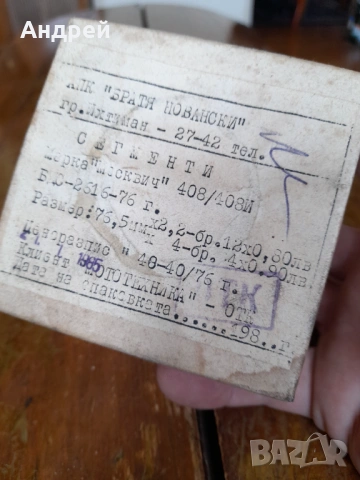 Андрей
АПК "БРАТЯ НОВАНСКИ"
гр.Ихтиман - 27-42 тел.
СЕГМЕНТИ
Марка"Москвич" 408/408И
БДС-2516-76 г.
Размер:76,5мм.х2,2-бр.12х0,60лв
4-бр. 4х0,90лв
Ценоразпис " 40-40/76 г.
Клиент "МОТОТЕХНИКА" - ОТК
1985
Дата на опаковката......198..г.
ОТК
BAZAR